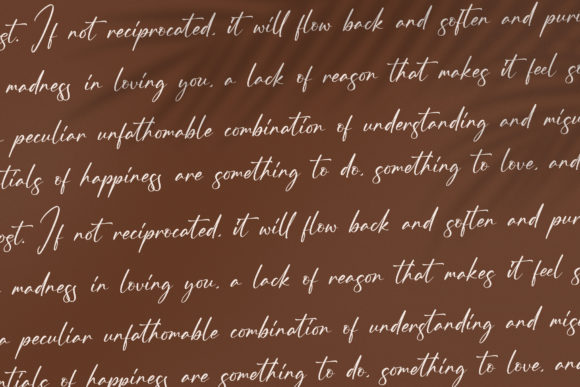 ost. If not reciprocated, it will flow back and soften and puri
madness in loving you, a lack of reason that makes it feel so
a peculiar unfathomable combination of understanding and misu
ntials of happiness are something to do, something to love, and
ost. If not reciprocated, it will flow back and soften and puri
madness in loving you, a lack of reason that makes it feel s
a peculiar unfathomable combination of understanding and misu
entials of happiness are something to do, something to love, and